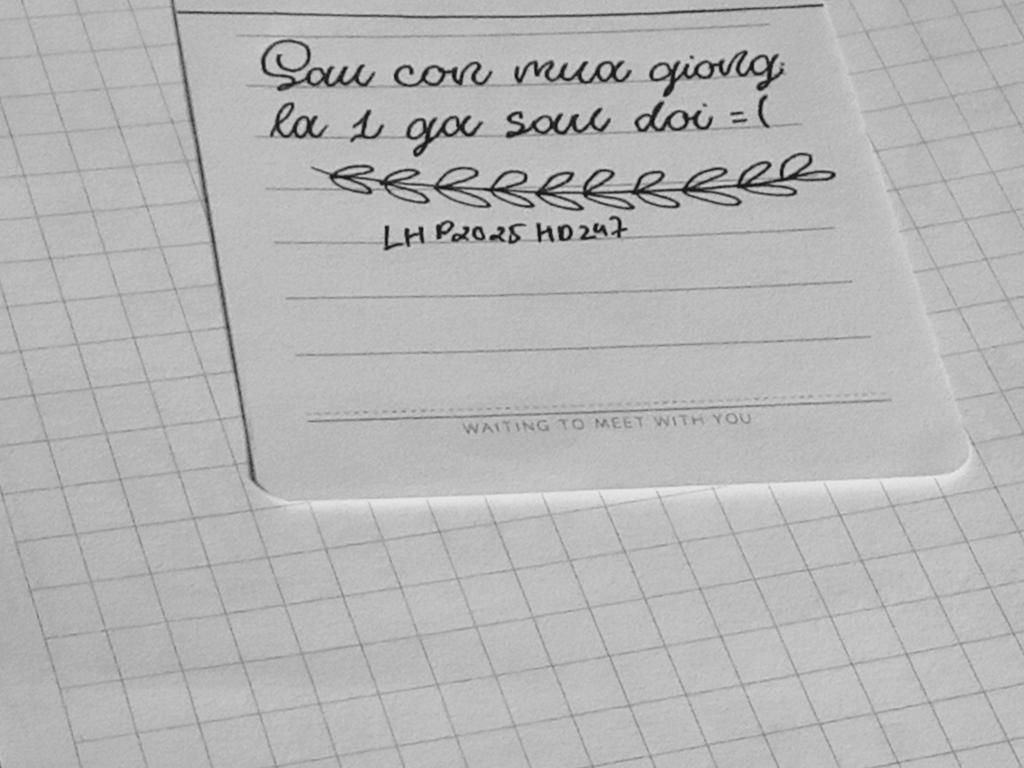 Sau con mua giong
la 1 ga sau doi =(
LHP2025HD247
WAITING TO MEET WITH YOU